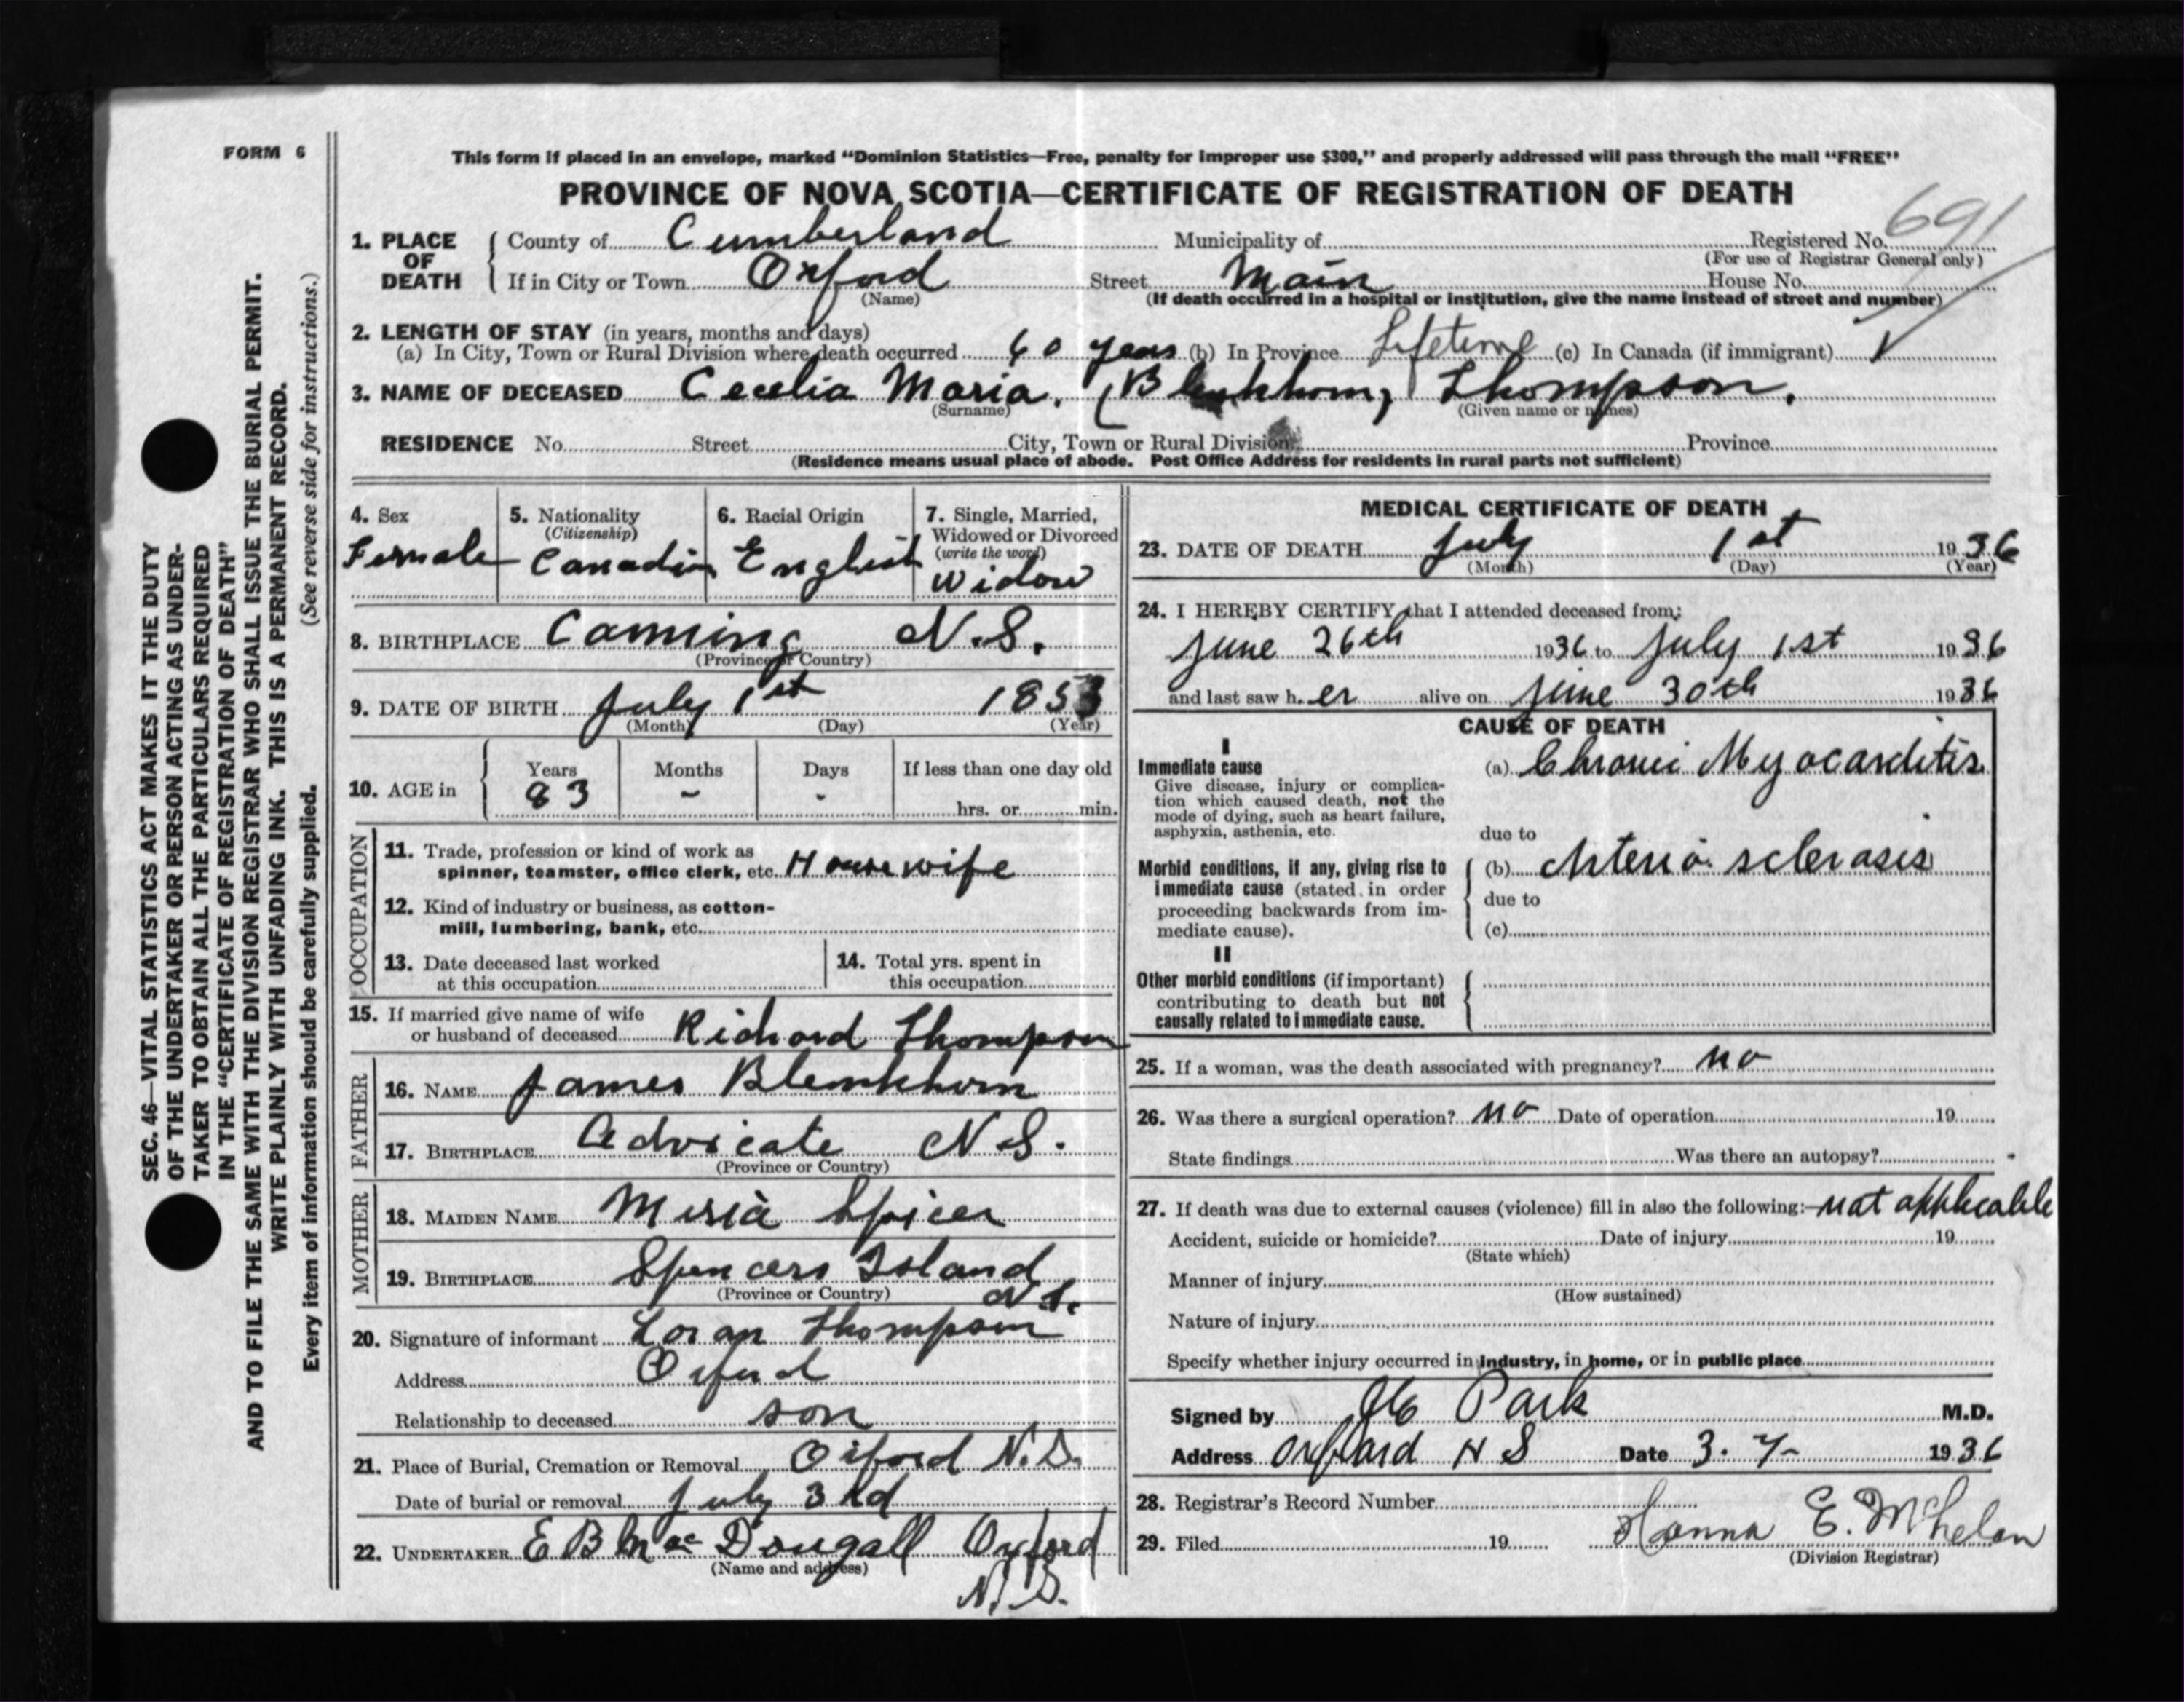 FORM 6
This form if placed in an envelope, marked "Dominion Statistics—Free, penalty for improper use $300," and properly addressed will pass through the mail "FREE"
PROVINCE OF NOVA SCOTIA—CERTIFICATE OF REGISTRATION OF DEATH
691
1. PLACE OF DEATH
County of Cumberland Municipality of Registered No.
(For use of Registrar General only)
If in City or Town Oxford Street Main House No.
(Name) (If death occurred in a hospital or institution, give the name instead of street and number)
2. LENGTH OF STAY (in years, months and days)
(a) In City, Town or Rural Division where death occurred 60 years (b) In Province Lifetime (c) In Canada (if immigrant)
3. NAME OF DECEASED Cecelia Maria. (Blenkhorn) Thompson.
(Surname) (Given name or names)
RESIDENCE No. Street City, Town or Rural Division Province
(Residence means usual place of abode. Post Office Address for residents in rural parts not sufficient)
4. Sex
Female
5. Nationality
(Citizenship)
Canadin
6. Racial Origin
English
7. Single, Married,
Widowed or Divorced
(write the word)
Widow
8. BIRTHPLACE Canning N.S.
(Province or Country)
9. DATE OF BIRTH July 1st 1853
(Month) (Day) (Year)
10. AGE in
Years Months Days If less than one day old
83 - - hrs. or min.
OCCUPATION
11. Trade, profession or kind of work as
spinner, teamster, office clerk, etc. Housewife
12. Kind of industry or business, as cotton-
mill, lumbering, bank, etc.
13. Date deceased last worked
at this occupation
14. Total yrs. spent in
this occupation
15. If married give name of wife
or husband of deceased Richard Thompson
FATHER
16. NAME James Blenkhorn
17. BIRTHPLACE Advicate N.S.
(Province or Country)
MOTHER
18. MAIDEN NAME Meria Spicer
19. BIRTHPLACE Spencers Island
(Province or Country) N.S.
20. Signature of informant Loran Thompson
Address Oxford
Relationship to deceased son
21. Place of Burial, Cremation or Removal Oxford N.S.
Date of burial or removal July 3rd
22. UNDERTAKER E B MacDougall Oxford
(Name and address)
N.S.
MEDICAL CERTIFICATE OF DEATH
23. DATE OF DEATH July 1st 1936
(Month) (Day) (Year)
24. I HEREBY CERTIFY that I attended deceased from:
June 26th 1936 to July 1st 1936
and last saw her alive on June 30th 1936
CAUSE OF DEATH
I
Immediate cause (a) Chronic Myocarditis
Give disease, injury or complica-
tion which caused death, not the
mode of dying, such as heart failure,
asphyxia, asthenia, etc.
due to
Morbid conditions, if any, giving rise to (b) Arterio sclerosis
immediate cause (stated in order
due to
proceeding backwards from im-
mediate cause). (c)
II
Other morbid conditions (if important)
contributing to death but not
causally related to immediate cause.
25. If a woman, was the death associated with pregnancy? no
26. Was there a surgical operation? no Date of operation 19
State findings Was there an autopsy?
27. If death was due to external causes (violence) fill in also the following:— not applicable
Accident, suicide or homicide? Date of injury 19
(State which)
Manner of injury
(How sustained)
Nature of injury
Specify whether injury occurred in industry, in home, or in public place
Signed by Park M.D.
Address Oxford N S Date 3. 7- 1936
28. Registrar's Record Number
29. Filed 19 Hanna E. McPhelan
(Division Registrar)
SEC. 46—VITAL STATISTICS ACT MAKES IT THE DUTY
OF THE UNDERTAKER OR PERSON ACTING AS UNDER-
TAKER TO OBTAIN ALL THE PARTICULARS REQUIRED
IN THE "CERTIFICATE OF REGISTRATION OF DEATH"
AND TO FILE THE SAME WITH THE DIVISION REGISTRAR WHO SHALL ISSUE THE BURIAL PERMIT.
WRITE PLAINLY WITH UNFADING INK. THIS IS A PERMANENT RECORD.
Every item of information should be carefully supplied. (See reverse side for instructions.)